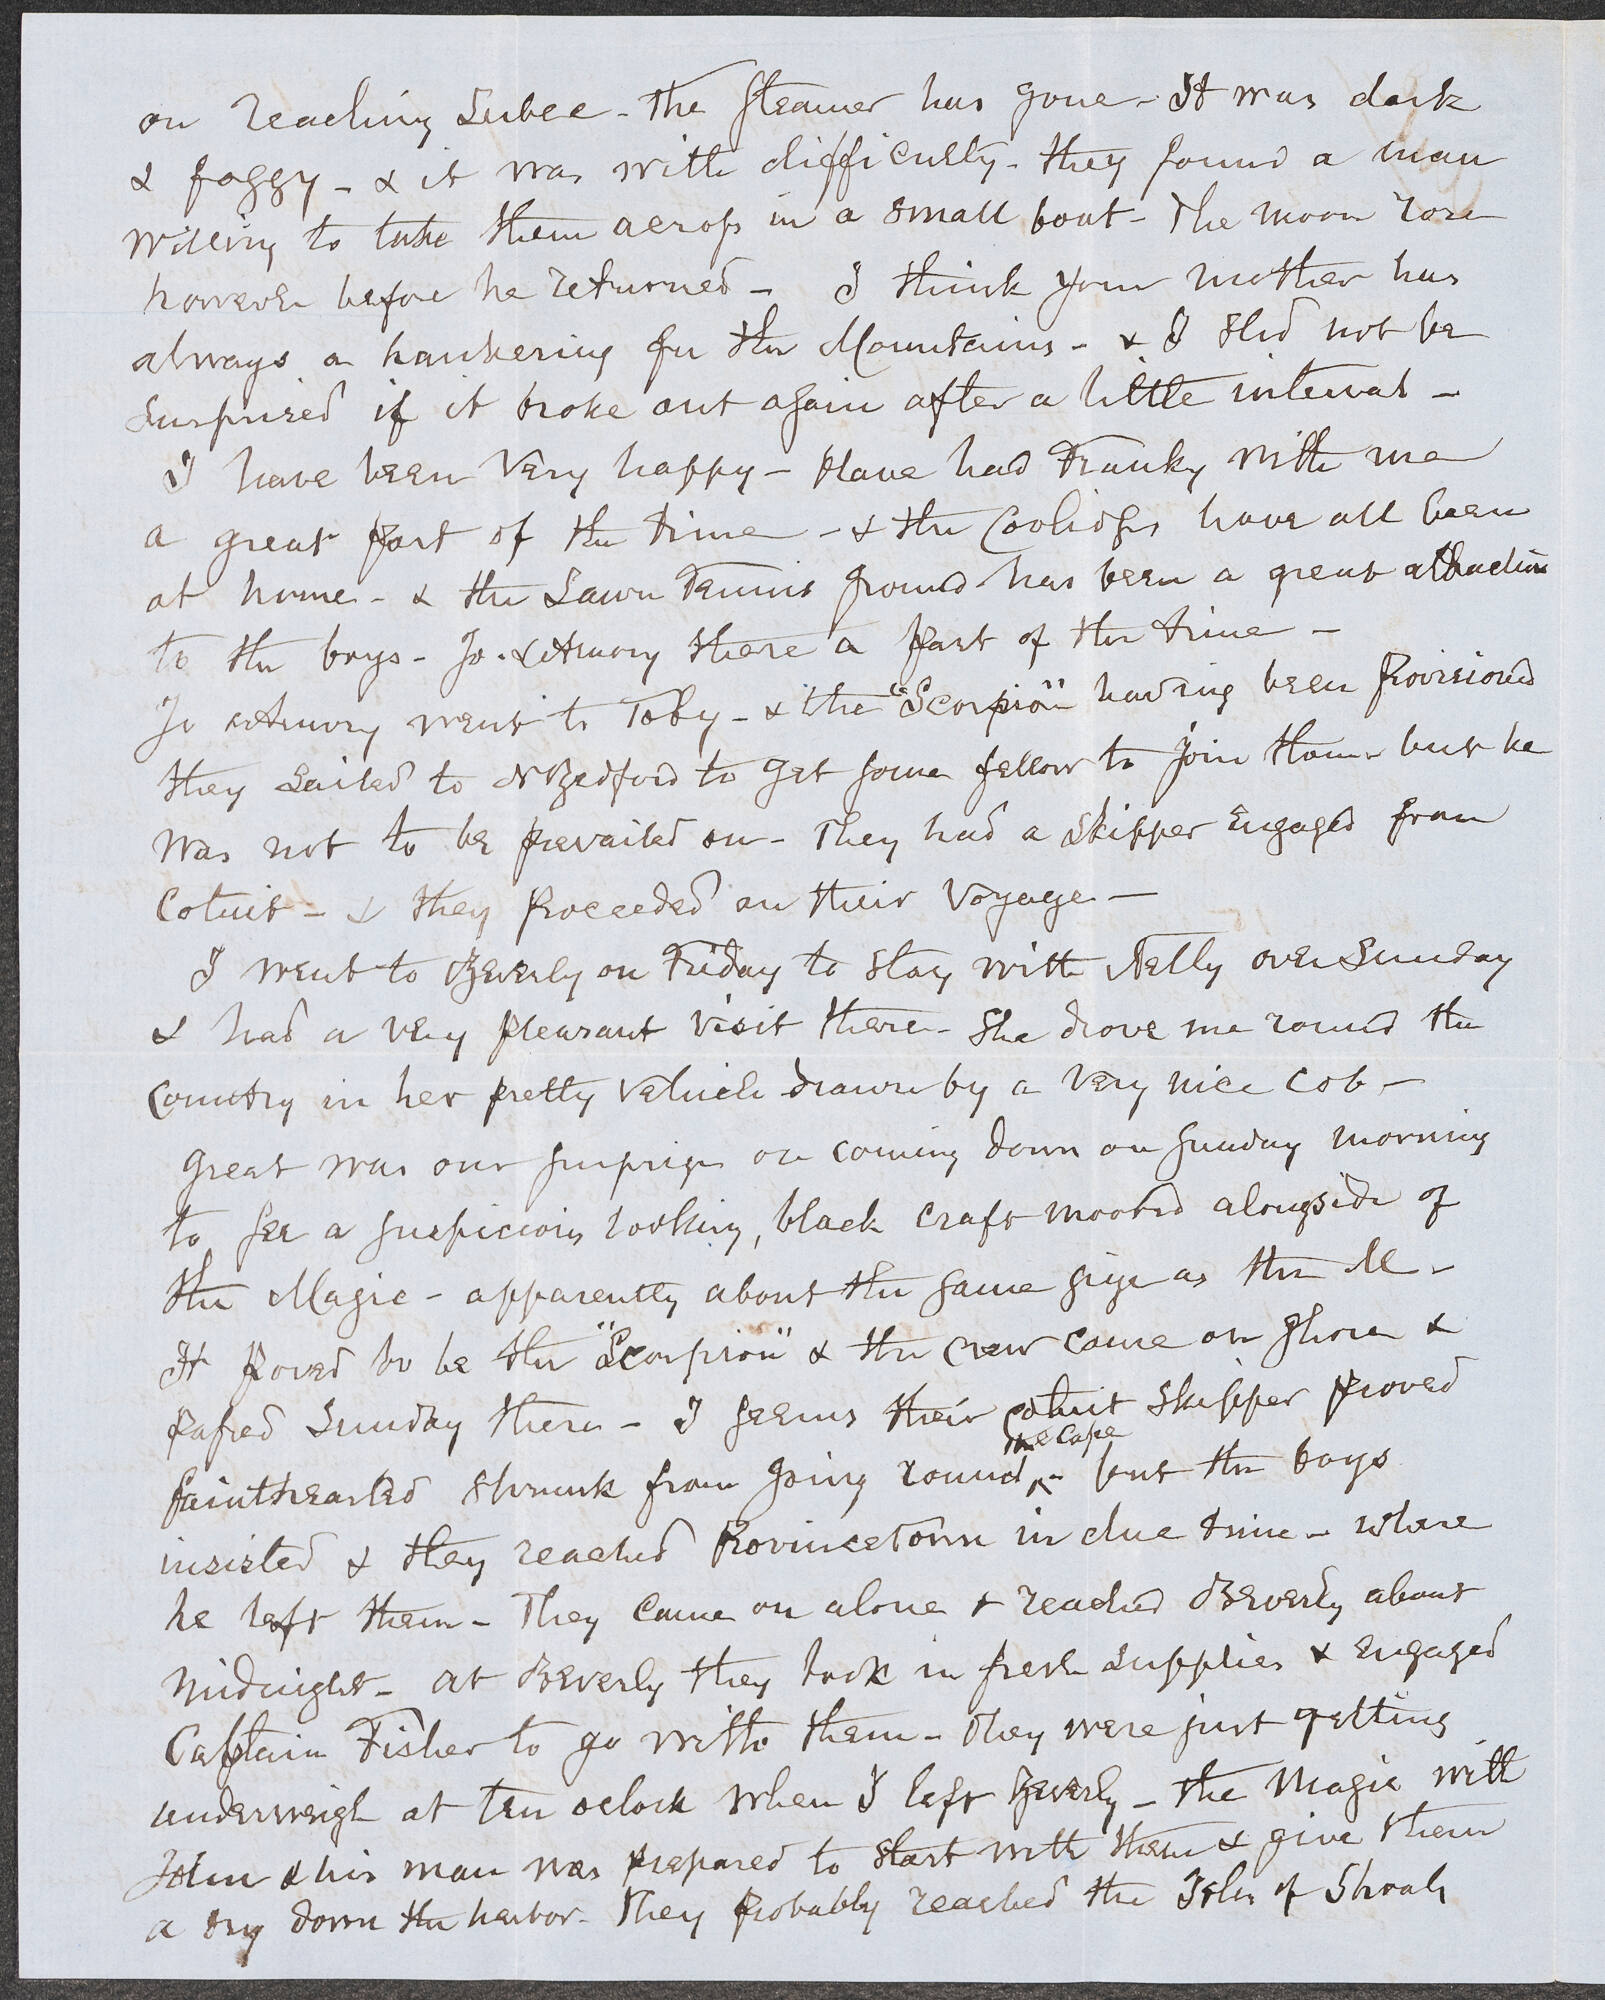 on reaching Lubec - the steamer has gone - It was dark
& foggy - & it was with difficulty - they found a man
willing to take them across in a small boat - The moon rose
however before he returned - I think your mother has
always a hankering for the Mountains - & I shd not be
surprised if it broke out again after a little interval -
I have been very happy - Have had Franky with me
a great part of the time - & the Coolidges have all been
at home - & the Lawn Tennis ground has been a great attraction
to the boys - Jo. & Amory there a part of the time -
Jo & Amory went to Toby - & the "Scorpion" having been provisioned
they sailed to N Bedford to get some fellow to join them but he
was not to be prevailed on - They had a skipper engaged from
Cotuit - & they proceeded on their voyage -
I went to Beverly on Friday to stay with Nelly over Sunday
& had a very pleasant visit there - She drove me round the
country in her pretty vehicle drawn by a very nice cob -
Great was our surprise on coming down on Sunday morning
to see a suspicious looking, black craft moored alongside of
the Magic - apparently about the same size as the M -
It proved to be the "Scorpion" & the crew came on shore &
passed Sunday there - I seems their Cotuit skipper proved
fainthearted shrunk from going round ^ the Cape - but the boys
insisted & they reached Provincetown in due time - where
he left them - They came on alone & reached Beverly about
midnight - at Beverly they took in fresh supplies & engaged
Captain Fisher to go with them - They were just getting
underweigh at ten oclock when I left Beverly - the Magic with
John & his man was prepared to start with them & give them
a tug down the harbor - They probably reached the Isles of Shoals